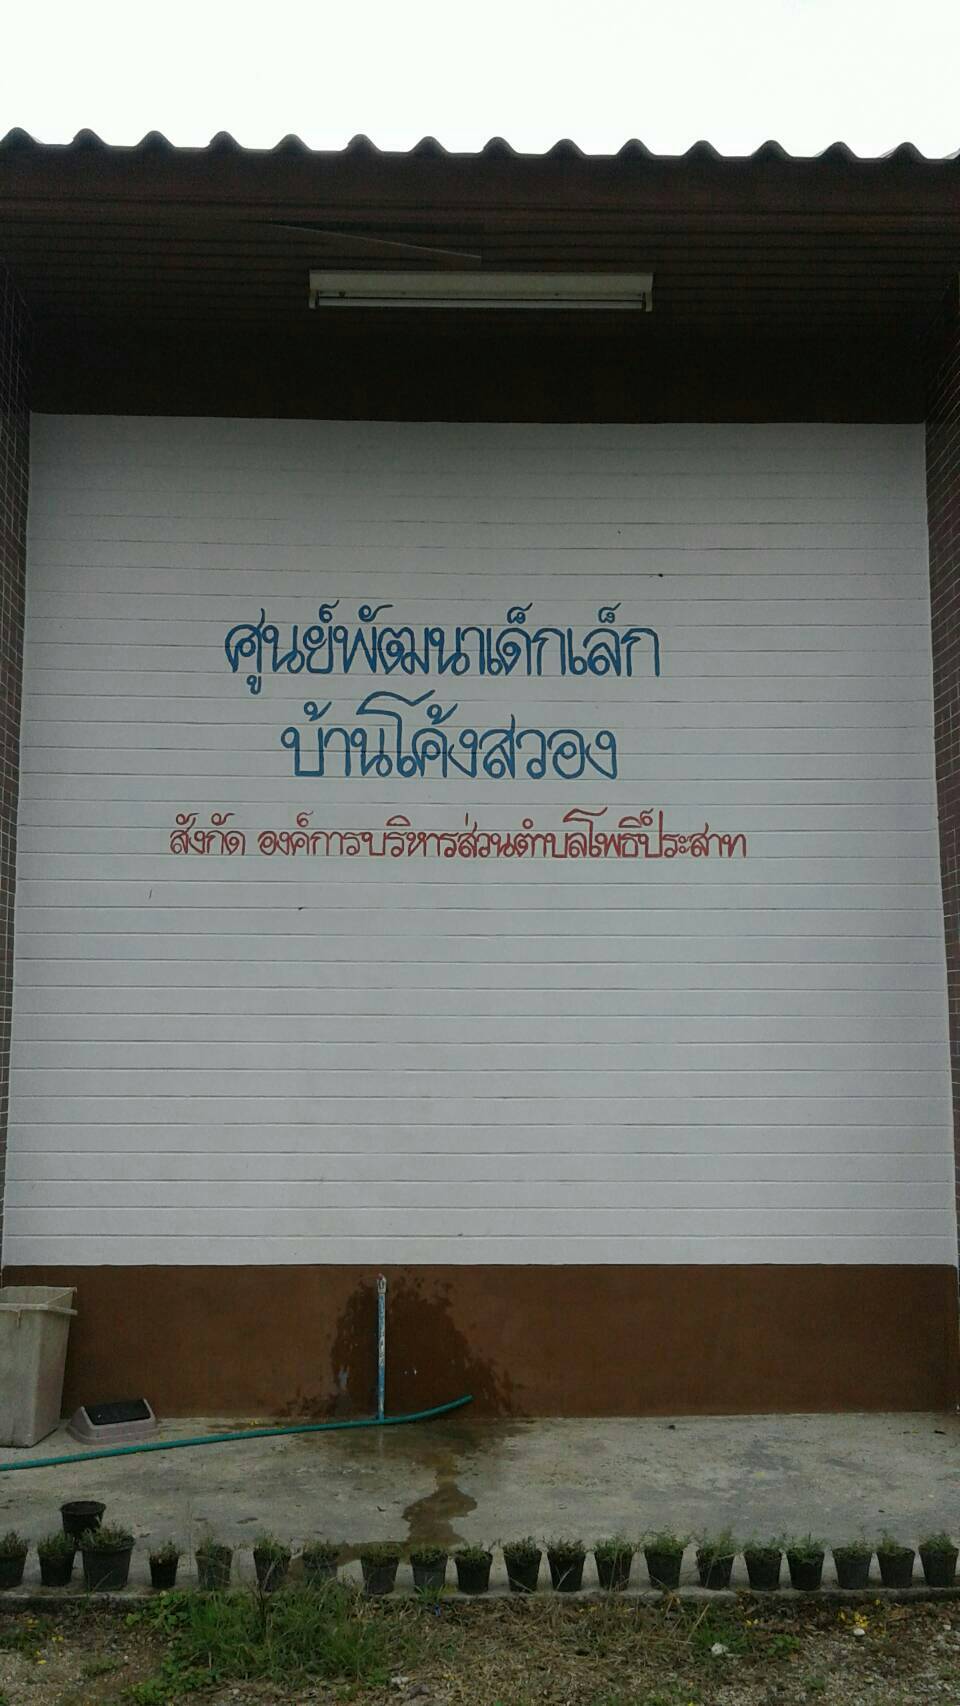 ศูนย์พัฒนาเด็กเล็ก
บ้านโค้งสวอง
สังกัด องค์การบริหารส่วนตำบลโพธิ์ประสาท